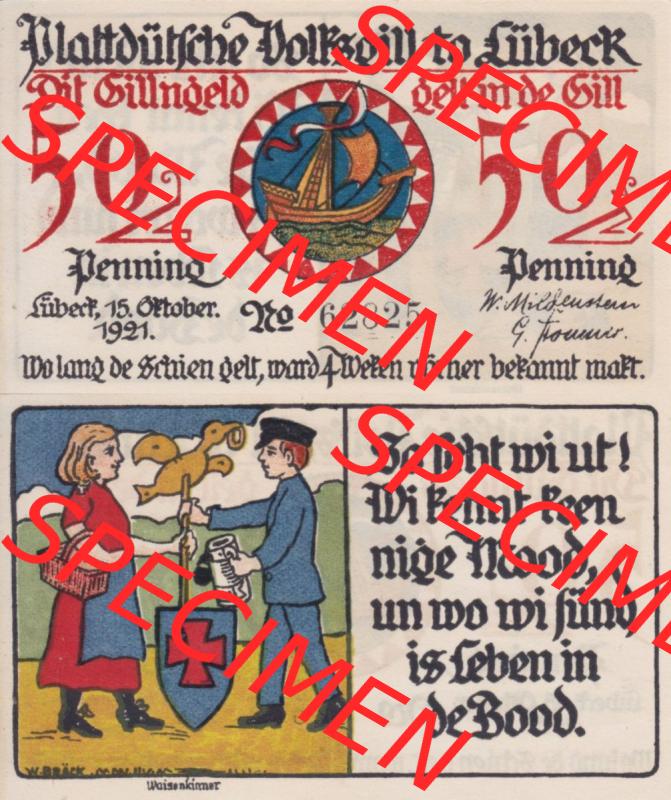 Plattdütsche Volksgill to Lübeck
Dit Gillngeld gelt in de Gill
50 50
Penning Penning
Lübeck, 15. Oktober. 1921.
No 62825
W. Mildenstein
Wo lang de Schien gelt, ward 4 Weken vörner bekannt makt.
So seht wi ut!
Wi kennt keen
nige Mood,
un wo wi sünd
is Leben in
de Bood.
W. BRÖCK
Waisenkinner
SPECIMEN
SPECIMEN
SPECIMEN
SPECIMEN